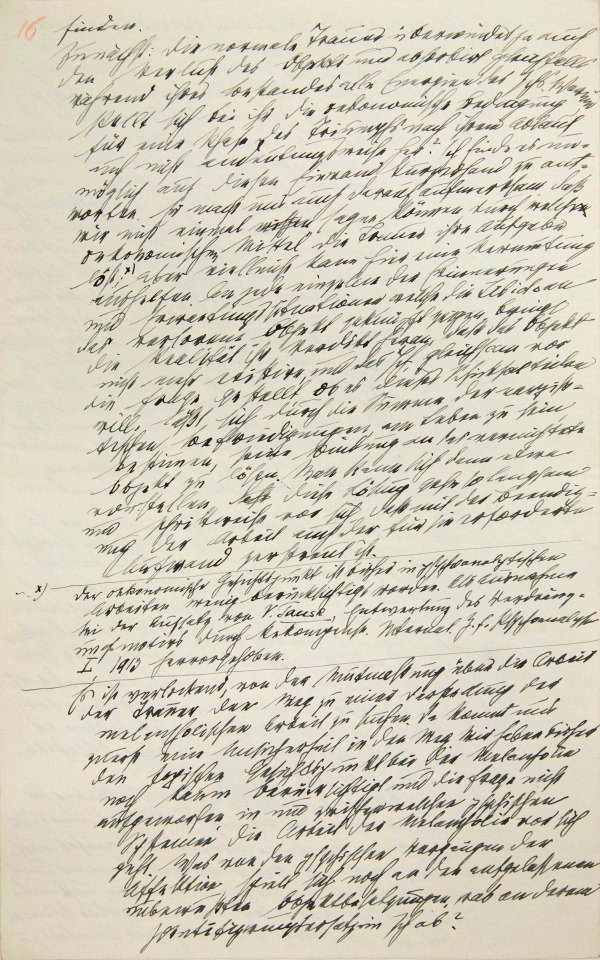 finden.
Zunächst: die normale Trauer überwindet ja auch
den Verlust des Objekts und absorbirt gleichfalls
während ihres Bestandes alle Energien des Ichs. Warum
stellt sich bei ihr die oekonomische Bedingung
für eine Phase des Triumphs nach ihrem Ablauf
auch nicht andeutungsweise her? Ich finde es un-
möglich auf diesen Einwand kurzerhand zu ant-
worten. Er macht uns auch darauf aufmerksam, daß
wir nicht einmal sagen können durch welche
oekonomischen Mittel die Trauer ihre Aufgabe
löst; x) aber vielleicht kann hier eine Vermutung
aushelfen. An jede einzelne der Erinnerungen
und Erwartungssituationen welche die Libido an
das verlorene Objekt geknüpft zeigen, bringt
die Realität ihr Verdikt heran, daß das Objekt
nicht mehr existire, und das Ich gleichsam vor
die Frage gestellt, ob es dieses Schicksal teilen
will, läßt sich durch die Summe der narziss-
tischen Befriedigungen, am Leben zu sein
bestimmen, seine Bindung an das vernichtete
Objekt zu lösen. Man kann sich denn etwa
vorstellen, daß diese Lösung gehe so langsam
und schrittweise vor sich, daß mit der Beendig-
ung der Arbeit auch der für sie erforderte
Aufwand zerstreut ist.
x) Der oekonomische Gesichtspunkt ist bisher in psychoanalytischen
Arbeiten wenig berücksichtigt worden. Als Ausnahme
sei der Aufsatz von V Tausk, Entwertung des Verdräng-
ungsmotivs durch Rekompense. Internat. Z. f. Psychoanalyse
I, 1913 hervorgehoben.
Es ist verlockend, von der Mutmaßung über die Arbeit
der Trauer den Weg zu einer Darstellung der
melancholischen Arbeit zu suchen. Da kommt uns
zuerst eine Unsicherheit in den Weg. Wir haben bisher
den topischen Gesichtspunkt bei der Melancholie
noch kaum berücksichtigt und die Frage nicht
aufgeworfen in und zwischen welchen psychischen
Systemen die Arbeit der Melancholie vor sich
geht. Was von den psychischen Vorgängen der
Affektion spielt sich noch an den aufgelassenen
unbewußten Objektbesetzungen, was an deren
Identifizirungsersatz im Ich ab?
16